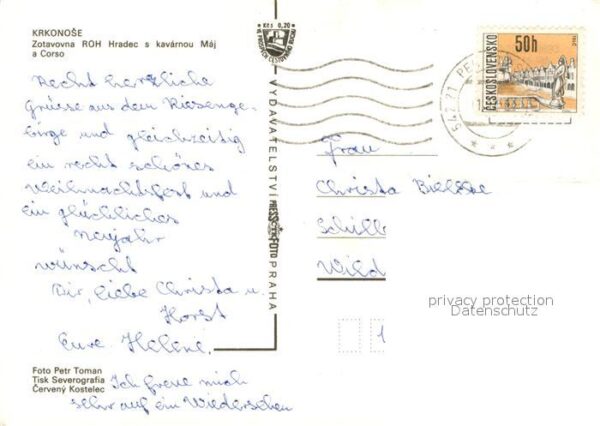 KRKONOŠE
Zotavovna ROH Hradec s kavárnou Máj
a Corso
Recht herzliche
Grüsse aus dem Riesenge-
birge und gleichzeitig
ein recht schönes
Weihnachtsfest und
ein glückliches
Neujahr
wünscht
Dir, liebe Christa u.
Horst
Eure Helene.
Ich freue mich
sehr auf ein Wiedersehen
Foto Petr Toman
Tisk Severografia
Červený Kostelec
Kčs 0,20
VYDAVATELSTVÍ PRESSFOTO PRAHA
50h
ČESKOSLOVENSKO
542 21 PE
Frau
Christa
Schill
Wild
1
privacy protection
Datenschutz